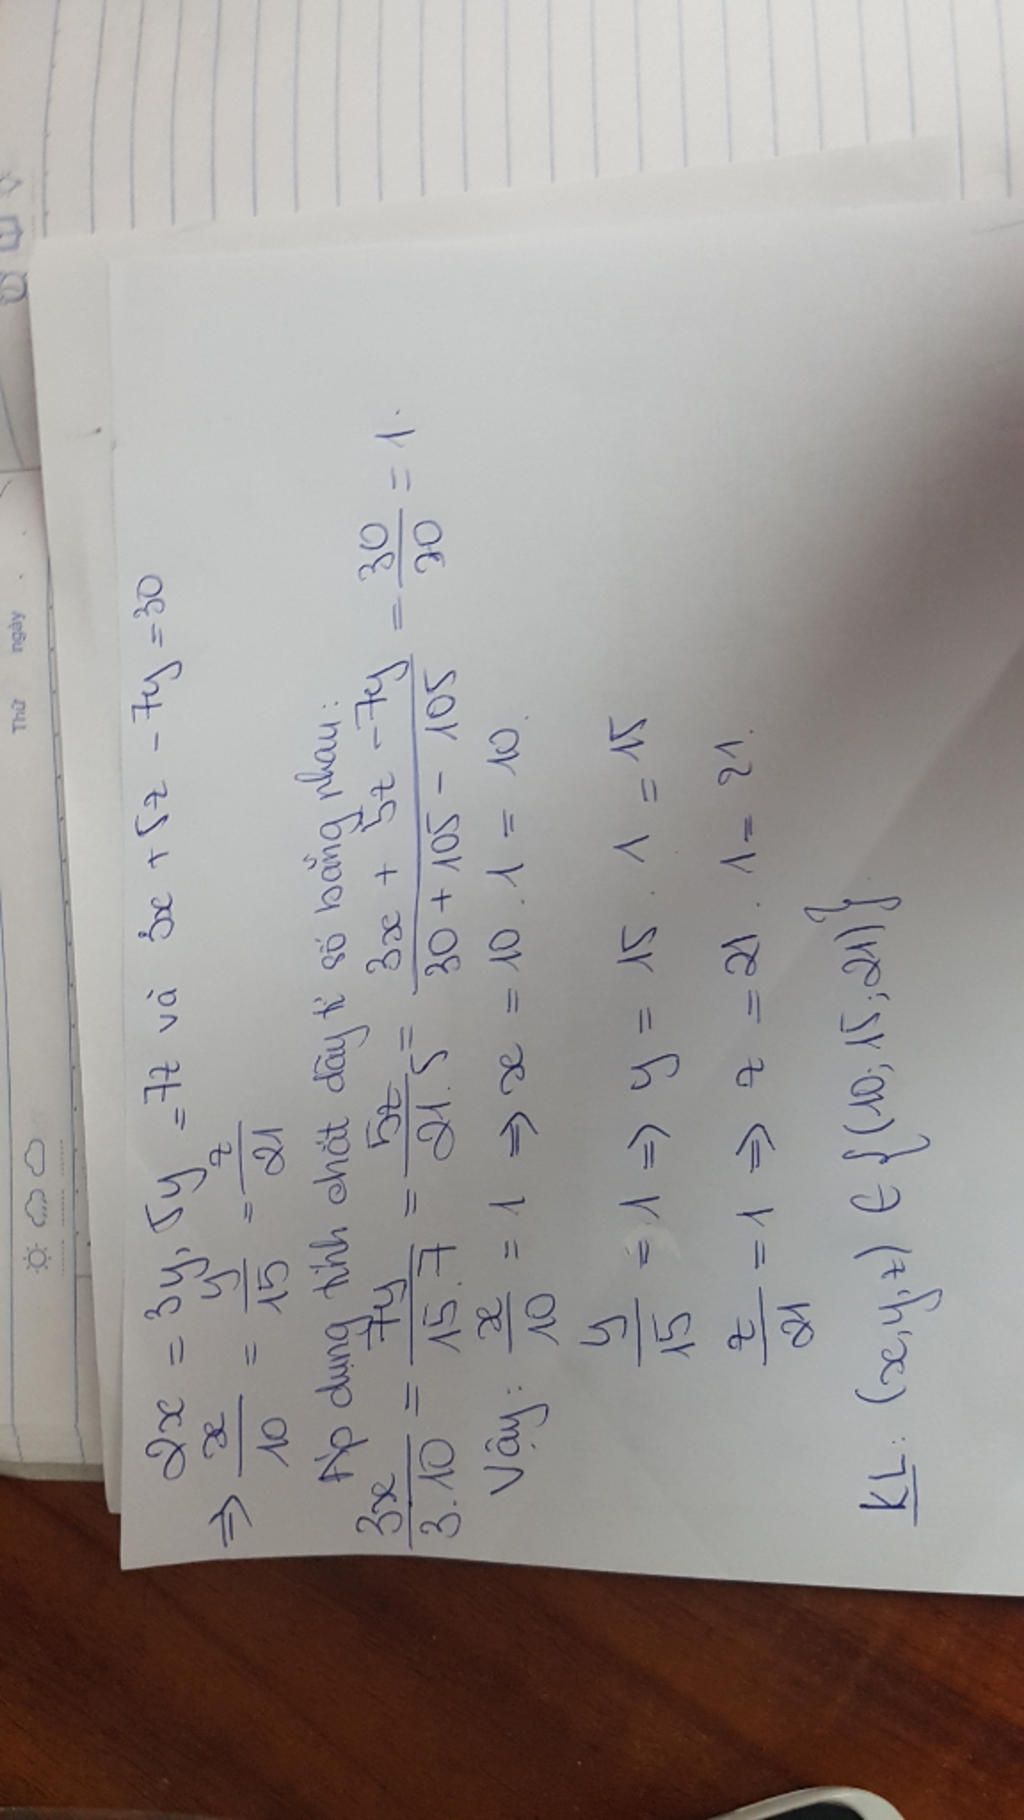 Thứ ngày
2x = 3y, 5y = 7z và 3x + 5z - 7y = 30
⇒ x/10 = y/15 = z/21
Áp dụng tính chất dãy tỉ số bằng nhau:
3x/3.10 = 7y/15.7 = 5z/21.5 = 3x + 5z - 7y/30 + 105 - 105 = 30/30 = 1.
Vậy: x/10 = 1 ⇒ x = 10 . 1 = 10.
y/15 = 1 ⇒ y = 15 . 1 = 15
z/21 = 1 ⇒ z = 21 . 1 = 21.
KL: (x, y, z) ∈ {(10; 15; 21)}